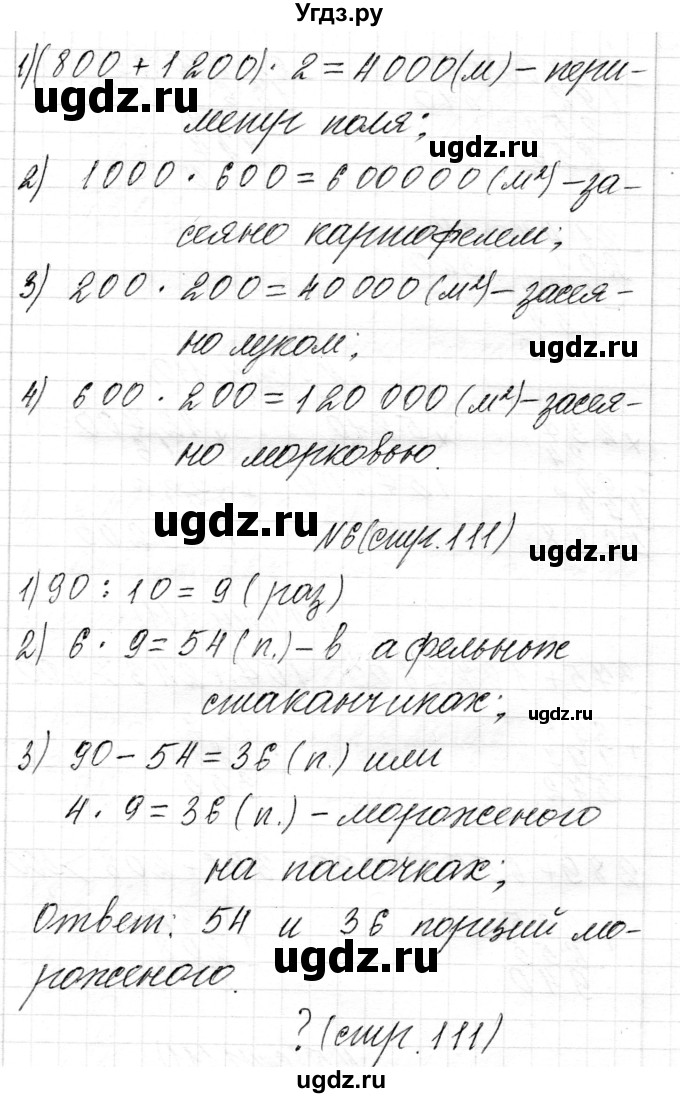 Угдз.ру
1)(800 + 1200) · 2 = 4000(м) – пери-
ugdz.ru
метр поля;
ugdz.ru
2) 1000 · 600 = 600000(м²) – за-
сеяно картофелем;
3) 200 · 200 = 40000(м²) – засея-
но луком;
ugdz.ru
4) 600 · 200 = 120 000(м²) – засея-
но морковью.
ugdz.ru
N6(стр.111)
ugdz.ru
1) 90 : 10 = 9 (раз)
2) 6 · 9 = 54 (п.) – в афельных
стаканчиках;
ugdz.ru
3) 90 – 54 = 36 (п.) или
4 · 9 = 36 (п.) – мороженого
на палочках;
Ответ: 54 и 36 порций мо-
роженого.
ugdz.ru
? (стр.111)
ugdz.ru